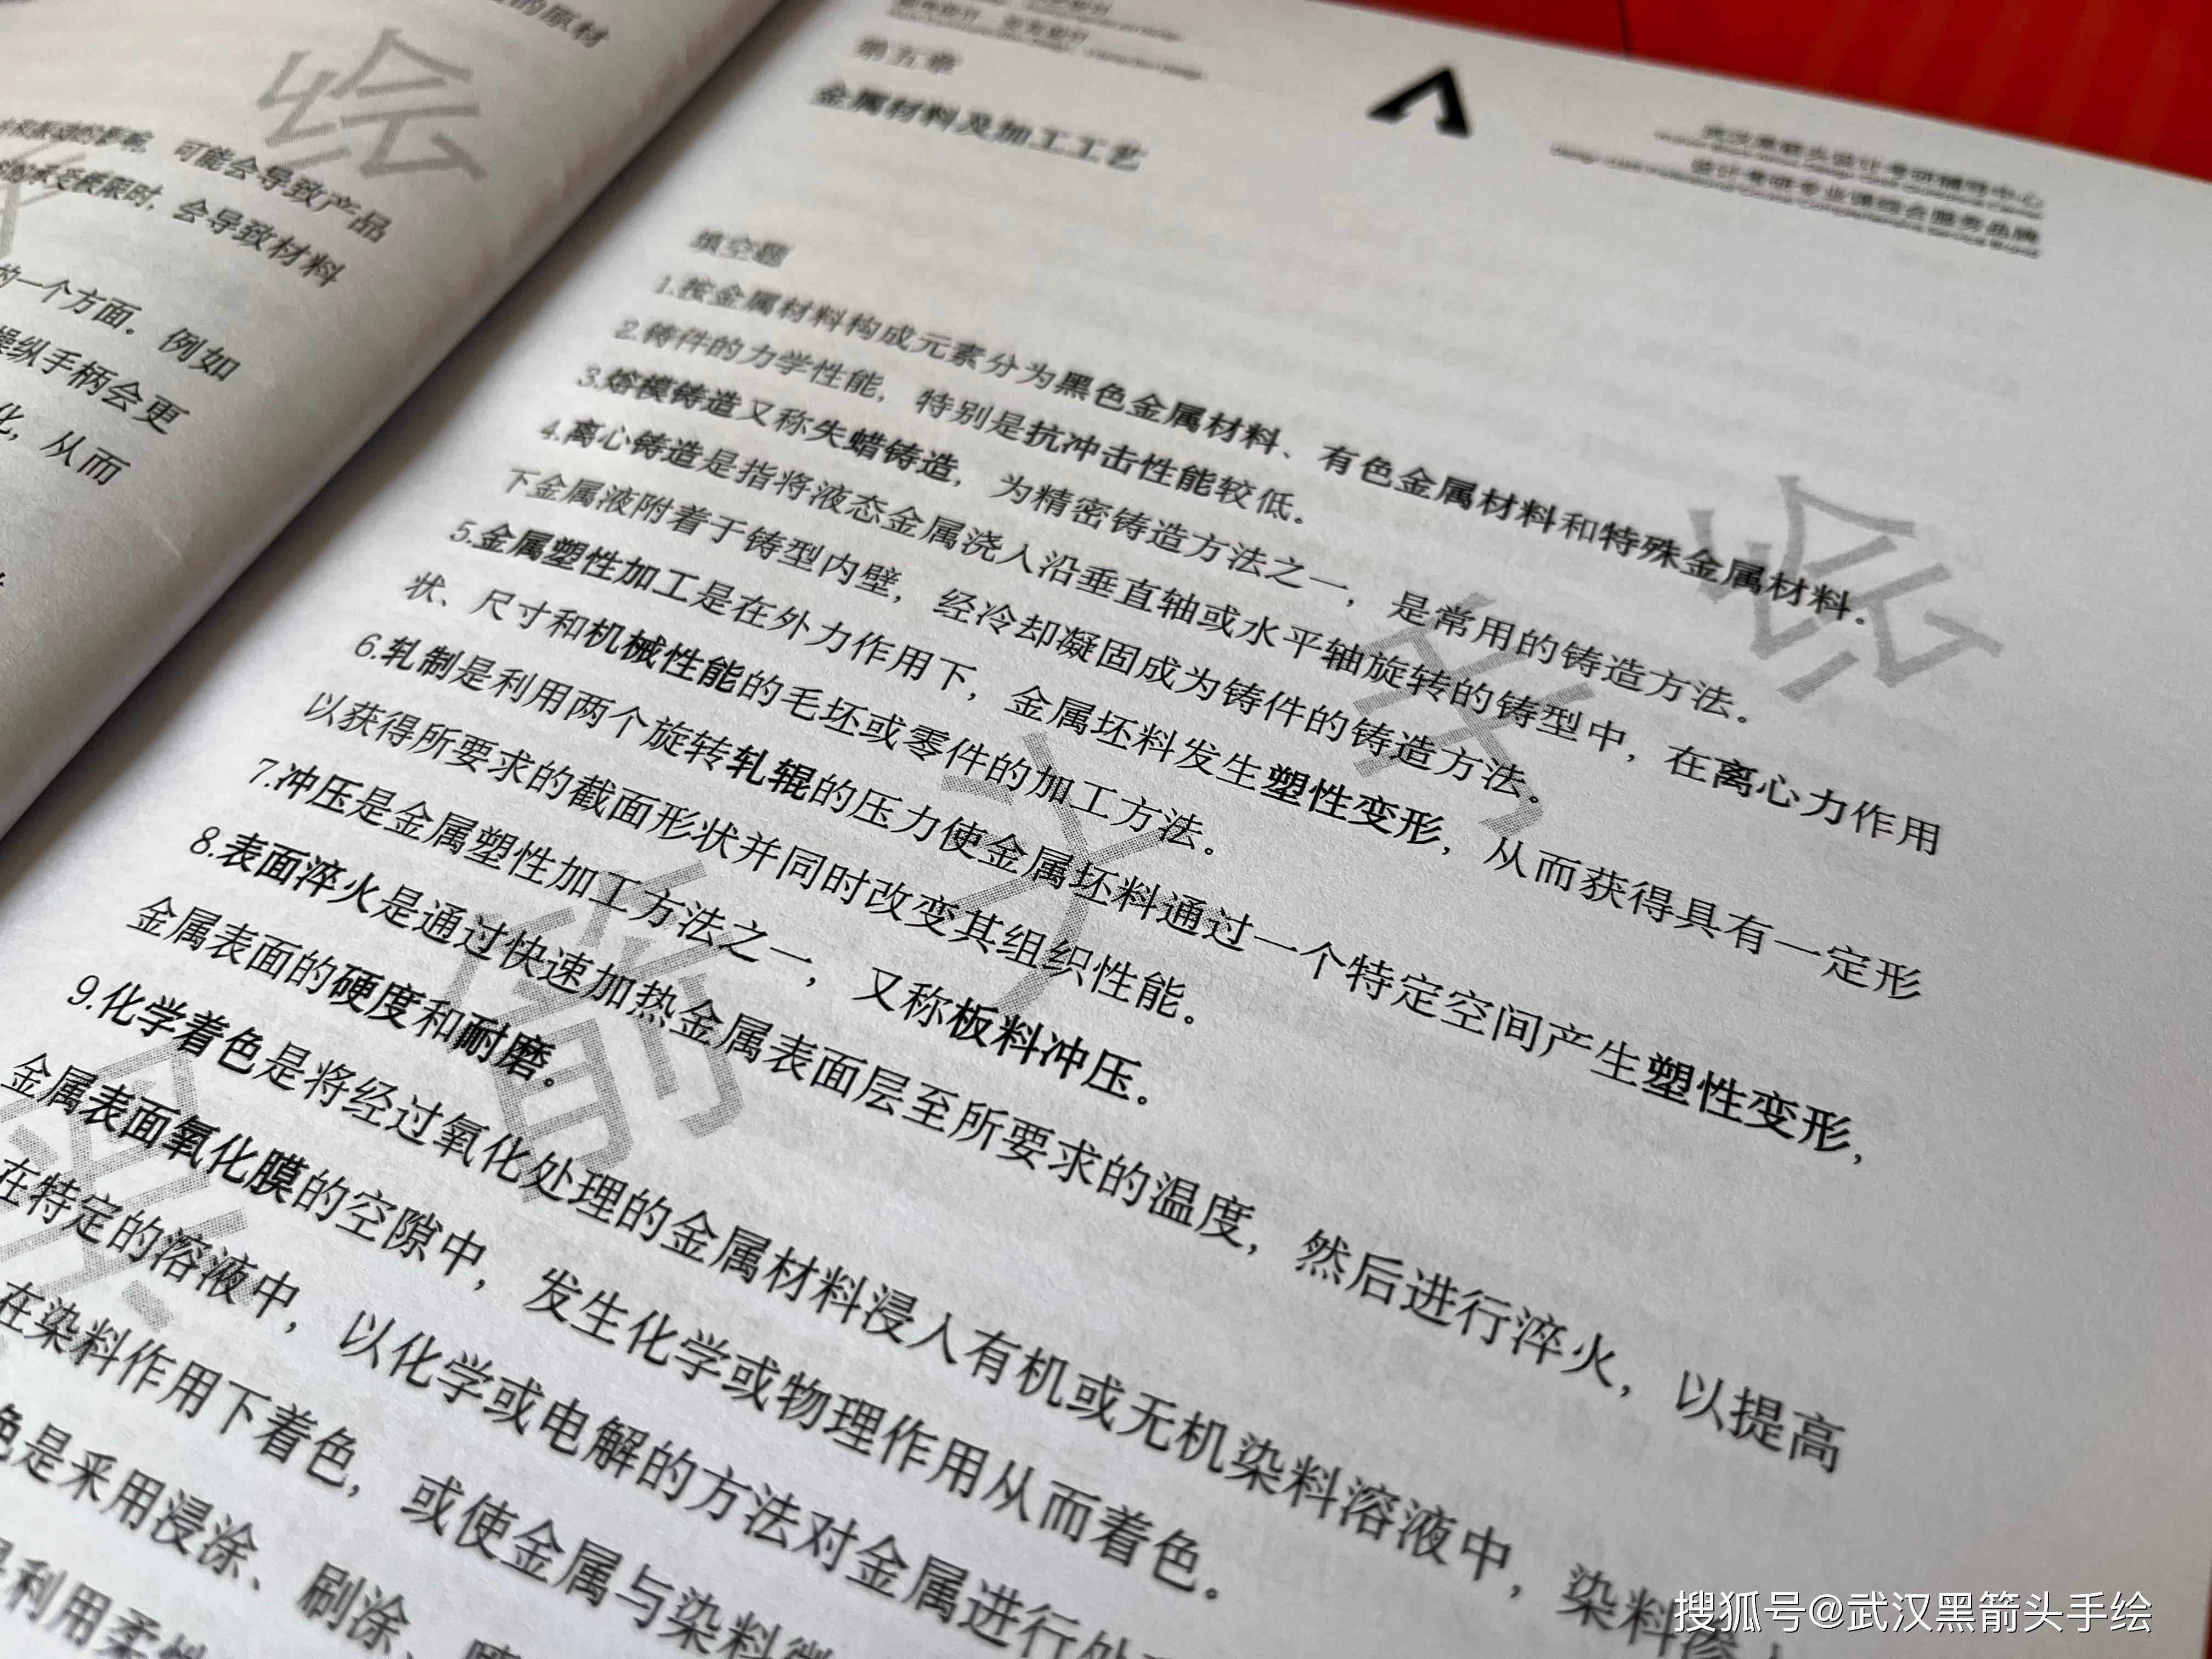 的原材
可能会导致产品
承受极限时，会导致材料
的一个方面。例如
操纵手柄会更
化，从而
第五章
金属材料及加工工艺
武汉黑箭头设计考研辅导中心
设计考研专业课综合服务品牌
填空题
1.按金属材料构成元素分为黑色金属材料、有色金属材料和特殊金属材料。
2.铸件的力学性能，特别是抗冲击性能较低。
3.熔模铸造又称失蜡铸造，为精密铸造方法之一，是常用的铸造方法。
4.离心铸造是指将液态金属浇入沿垂直轴或水平轴旋转的铸型中，在离心力作用
下金属液附着于铸型内壁，经冷却凝固成为铸件的铸造方法。
5.金属塑性加工是在外力作用下，金属坯料发生塑性变形，从而获得具有一定形
状、尺寸和机械性能的毛坯或零件的加工方法。
6.轧制是利用两个旋转轧辊的压力使金属坯料通过一个特定空间产生塑性变形，
以获得所要求的截面形状并同时改变其组织性能。
7.冲压是金属塑性加工方法之一，又称板料冲压。
8.表面淬火是通过快速加热金属表面层至所要求的温度，然后进行淬火，以提高
金属表面的硬度和耐磨。
9.化学着色是将经过氧化处理的金属材料浸入有机或无机染料溶液中，染料渗入
金属表面氧化膜的空隙中，发生化学或物理作用从而着色。
在特定的溶液中，以化学或电解的方法对金属进行处
在染料作用下着色，或使金属与染料微
色是采用浸涂、刷涂、喷
是利用柔性
绘
黑箭头手绘
搜狐号@武汉黑箭头手绘